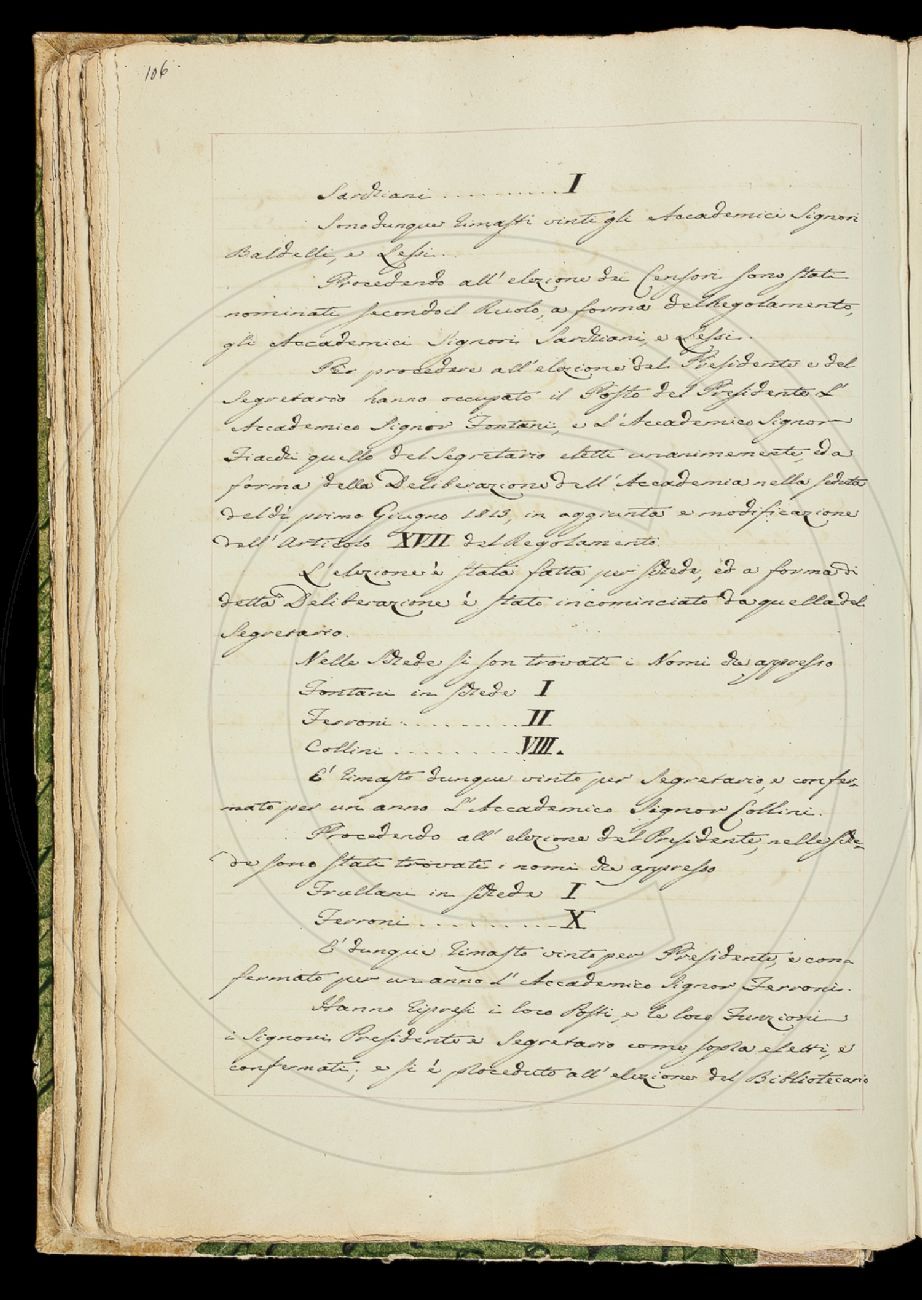 106
Sarchiani . . . . . . . . . . I
Sono dunque rimasti vinti gli Accademici Signori
Baldelli, e Lessi.
Procedendo all' elezione dei Censori sono stati
nominati secondo il Ruolo, a forma del Regolamento,
gli Accademici Signori Sarchiani, e Lessi.
Per procedere all' elezione del Presidente e del
Segretario hanno occupato il Posto del Presidente L'
Accademico Signor Fontani, e L' Accademico Signor
Fiacchi quello del Segretario eletti unanimemente, ed a
forma della Deliberazione dell' Accademia nella seduta
del dì primo Giugno 1813, in aggiunta e modificazione
dell' Articolo XVII del Regolamento.
L' elezione è stata fatta per schede, ed a forma di
detta Deliberazione è stato incominciato da quella del
Segretario.
Nelle schede si son trovati i Nomi che appresso
Fontani in schede I
Ferroni . . . . . . . . . . II
Collini . . . . . . . . . . VIII.
E' rimasto dunque vinto per Segretario, e confer-
mato per un anno L' Accademico Signor Collini.
Procedendo all' elezione del Presidente, nelle sche-
de sono stati trovati i nomi che appresso
Frullani in schede I
Ferroni . . . . . . . . . . X
E' dunque rimasto vinto per Presidente, e con-
fermato per un anno L' Accademico Signor Ferroni.
Hanno ripresi i loro Posti, e le loro Funzioni
i Signori Presidente e Segretario come sopra eletti, e
confermati; e si è proceduto all' elezione del Bibliotecario